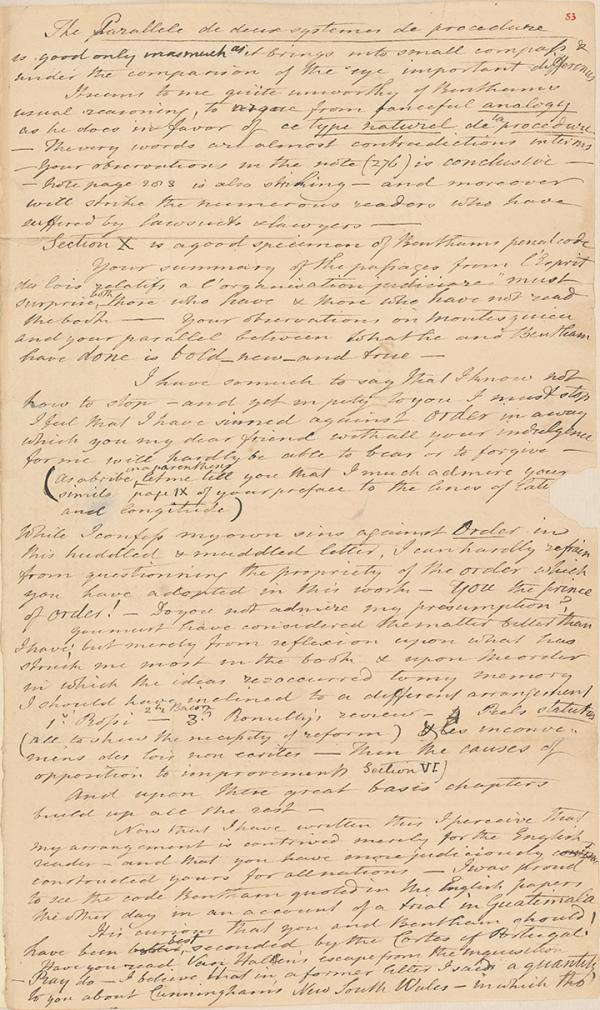 53
The Parallele de deux systemes de procedure
is good only inasmuch as it brings into small compass &
under the comparison of the eye important differences
I seems to me quite unworthy of Benthams
usual reasoning, to argue from fanceful analogy
as he does in favor of ce type naturel de la procedure
— The very words are almost contradictions in terms
— Your observations in the note (276) is conclusive —
— note page 203 is also striking — and moreover
will strike the numerous readers who have
suffered by lawsuits & lawyers —
Section X is a good specimen of Benthams penal code
Your summary of the passages from l'Esprit
des lois relatifs a l'organisation judiciaire" must
surprise both those who have & those who have not read
the book — Your observations on Montesquieu
and your parallel between what he and Bentham
have done is bold_new_and true —
I have so much to say that I know not
how to stop — and yet in pity to you I must stop
I feel that I have sinned against Order in a way
which you my dear friend with all your indulgence
for me will hardly be able to bear or to forgive —
(as a bribe in a parenthesis let me tell you that I much admire your
simile page IX of your preface to the lines of late
and longitude)
While I confess my own sins against Order in
this huddled & muddled letter, I can hardly refrain
from questioning the propriety of the order which
you have adopted in this work — You the prince
of order! — Do you not admire my presumption?
You must have considered the matter better than
I have; but merely from reflexion upon what has
struck me most in the book & upon the order
in which the ideas reoccurred to my memory
I should have inclined to a different arrangement
1st Rossi — 2d Bacon 3d Romilly's review — Peels statutes
(all to shew the necessity of reform) Les inconve-
niens des lois non ecrites — Then the causes of
opposition to improvement Section VI)
And upon there great basis chapters
build up all the rest —
Now that I have written this I perceive that
my arrangement is contrived merely for the English
reader — and that you have more judiciously
constructed yours for all nations — I was proud
to see the code Bentham quoted in the English papers
the other day in an account of a trial in Guatimala
It is curious that you and Bentham should
have been best seconded by the Cortes of Portugal!
Have you read Van Halen's escape from the Inquisition
— Pray do — I believe that in a former letter I said a quantity
to you about Cunningham's New South Wales — in which tho'